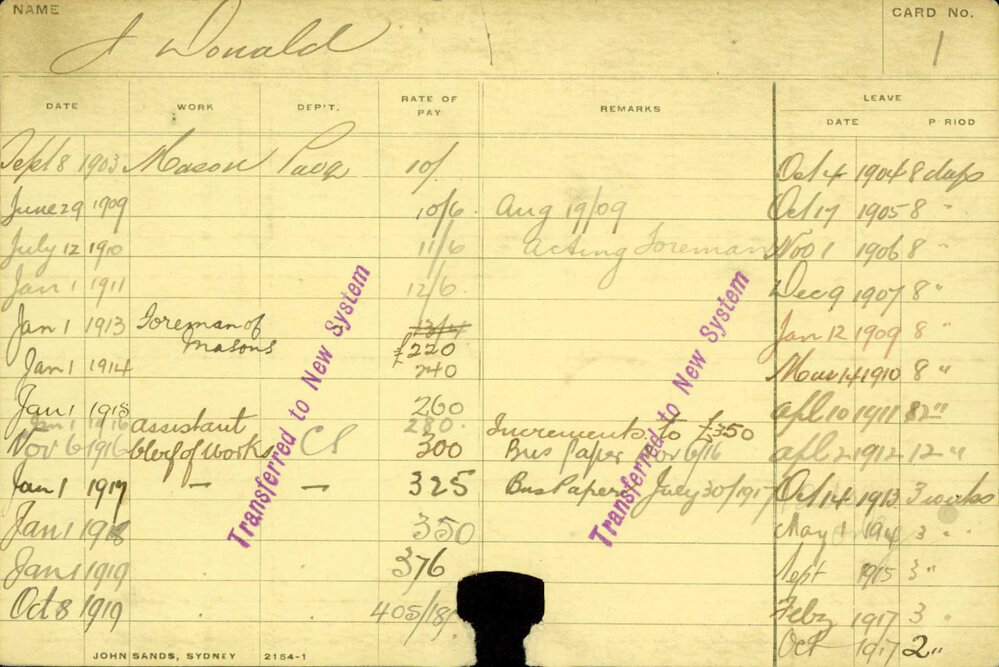 NAME J Donald CARD No. 1
DATE WORK DEP'T. RATE OF PAY REMARKS LEAVE
DATE P RIOD
Sept 8 1903 Mason 10/ Oct 4 1904 8 days
June 29 1909 10/6 Aug 19/09 Oct 17 1905 8 "
July 12 1910 11/6 Acting Foreman Nov 1 1906 8 "
Jan 1 1911 12/6 Dec 9 1907 8 "
Jan 1 1913 Foreman of Masons £220 Jan 12 1909 8 "
Jan 1 1914 240 Mar 14 1910 8 "
Jan 1 1915 260 Apl 10 1911 "
Jan 1 1916 assistant 280 Increments to £350
Nov 6 1916 Clerk of Works 300 Bus Paper Nov 6/16 Apl 2 1912 12 "
Jan 1 1917 — — 325 Bus Paper July 30/1917 Oct 14 1913 3 weeks
Jan 1 1918 350 May 1 3 "
Jan 1 1919 376 Sept 1915 3 "
Oct 8 1919 405/18/ Feby 1917 3 "
Oct 1917 2 "
Transferred to New System
Transferred to New System
JOHN SANDS, SYDNEY 2154-1